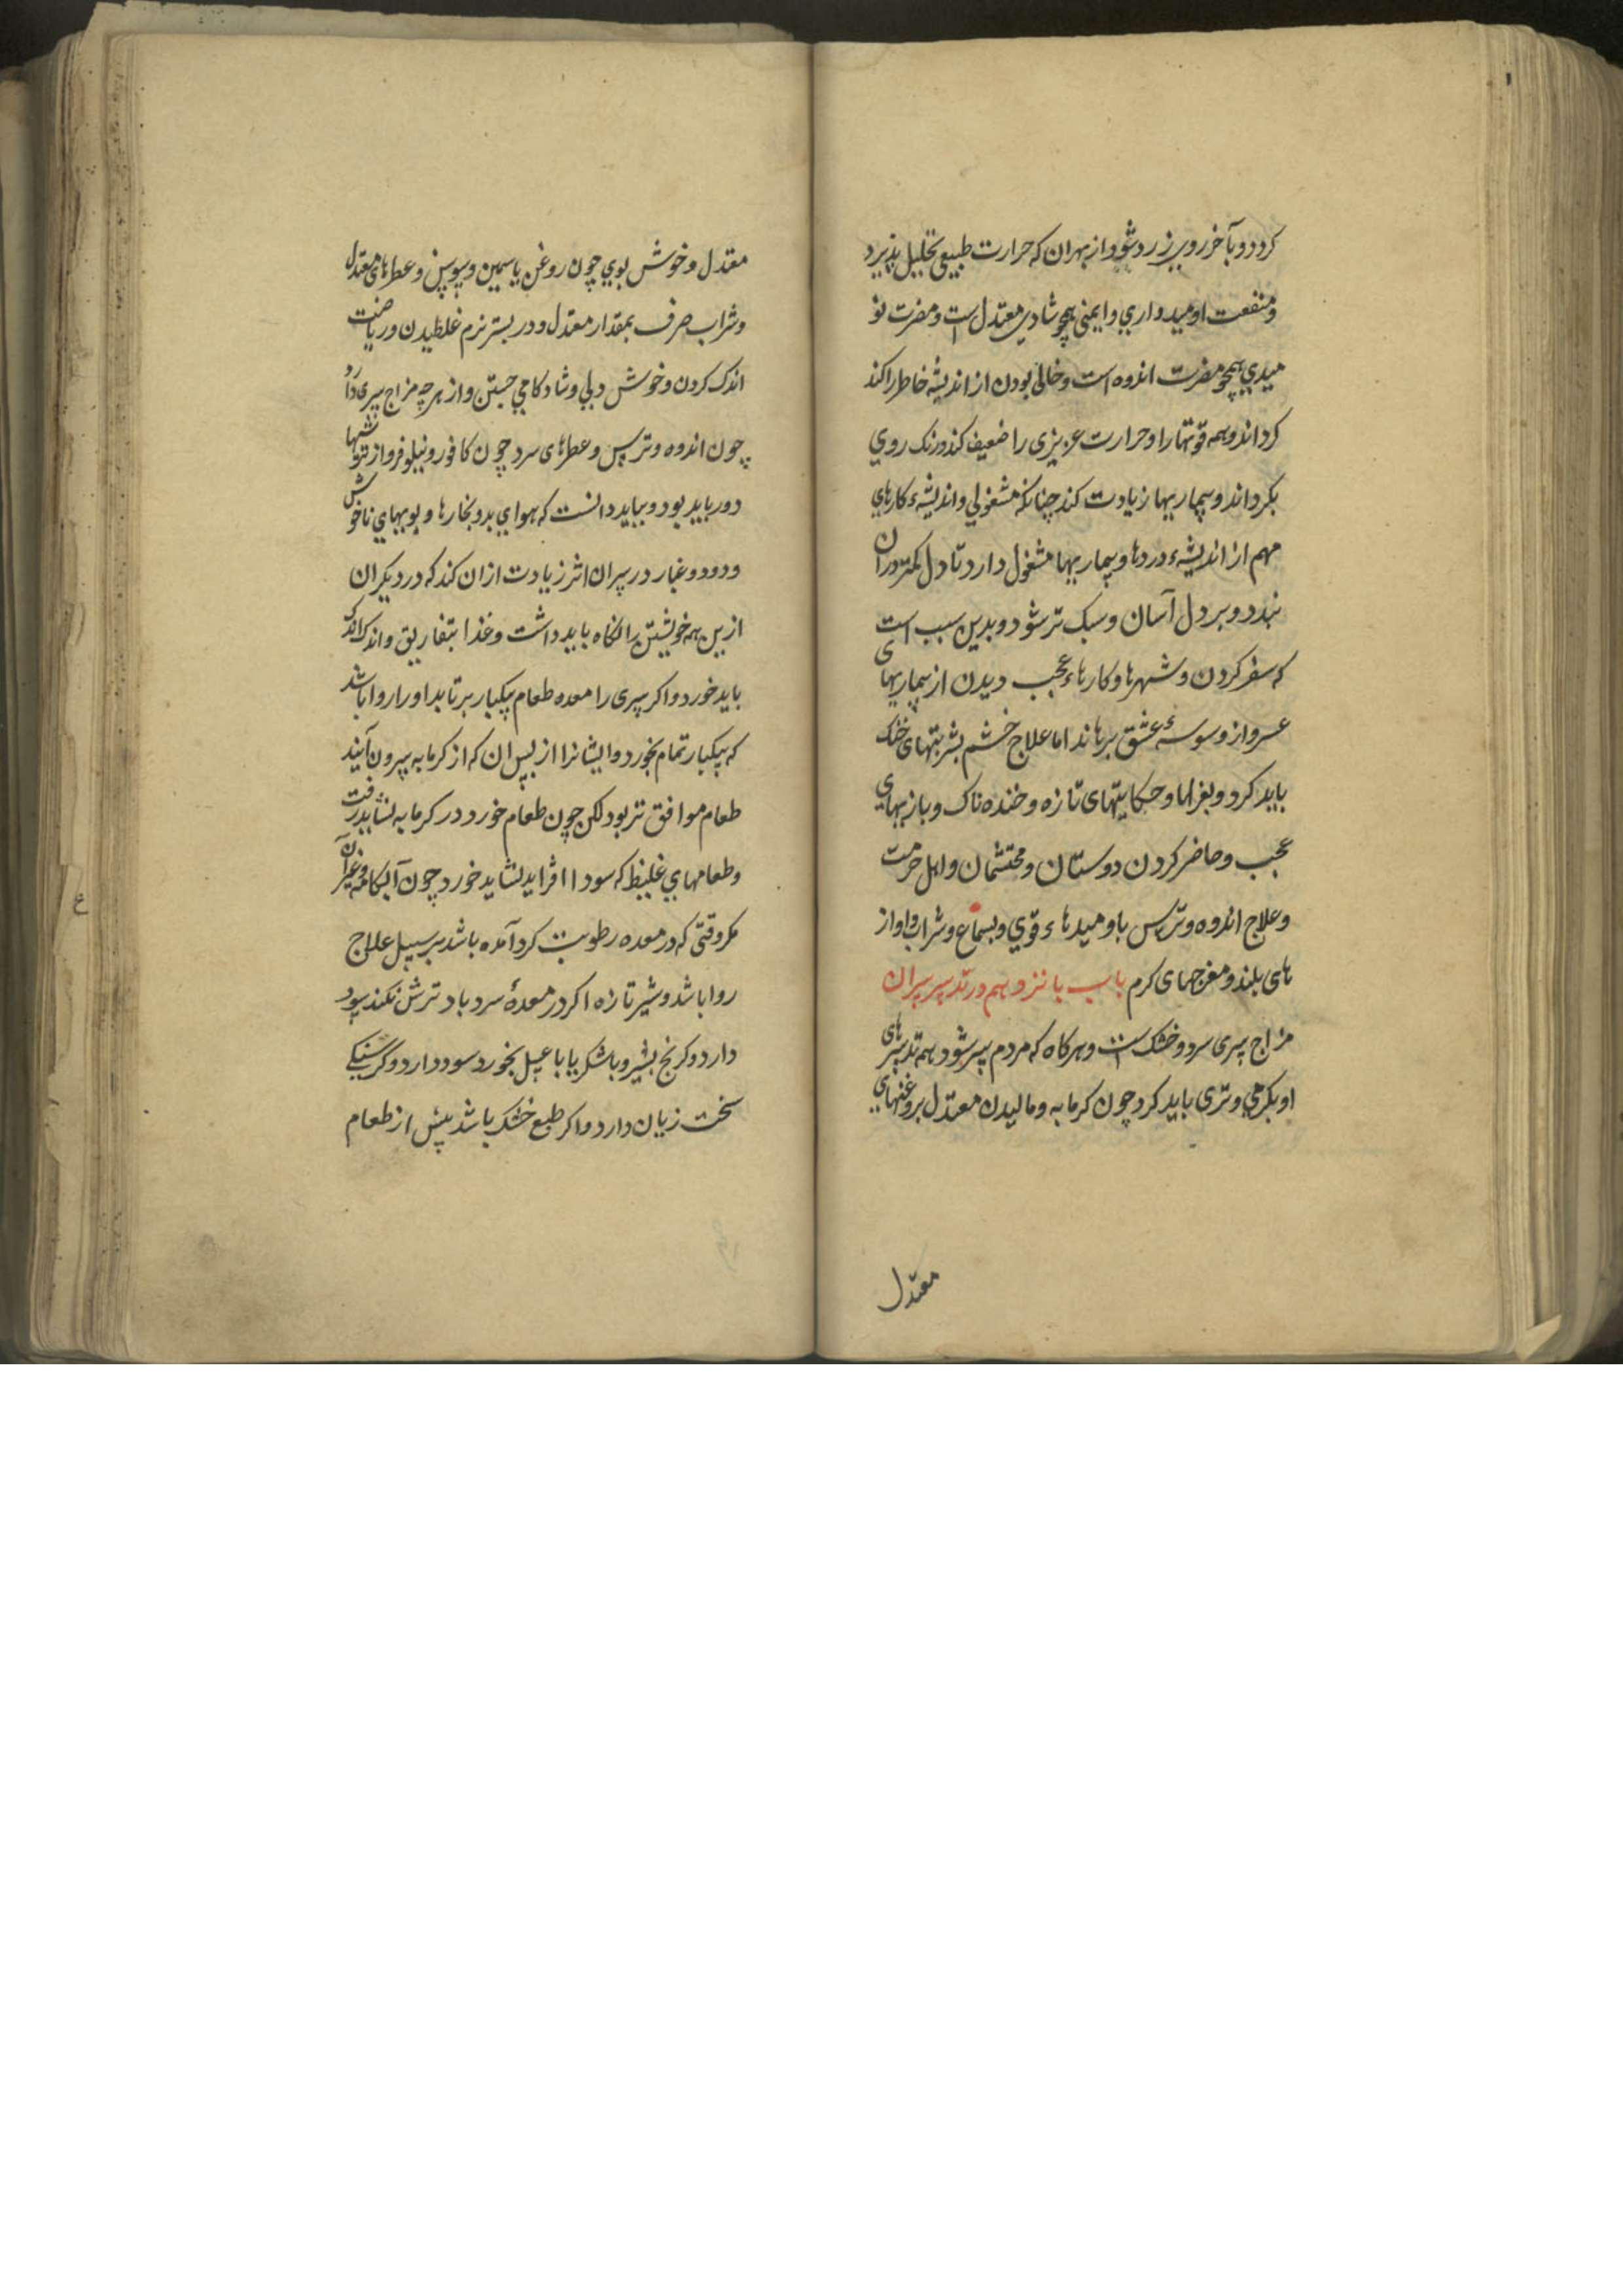 کردد و بآخر روی زرد شود از بهر ان که حرارت طبیعی تحلیل پذیرد
و منفعت اومیدداري و ایمنی همچو شادی معتدل است و مضرت نو
میدي همچو مضرت اندوه است و خالی بودن از اندیشهٔ خاطر را کند
کرداند و همه قوتها را و حرارت عزیزی را ضعیف کند و رنک روي
بکرداند و بیماریها زیادت کند چنانکه مشغولي و اندیشهٔ کارهاي
مهم از اندیشهٔ دردها و بیماریها مشغول دارد تا دل کمتر در ان
بندد و بر دل آسان و سبک تر شود و بدین سبب است
که سفر کردن و شهرها و کارهاء عجب دیدن از بیماریهای
عسر و از وسوسهٔ عشق برهاند اما علاج خشم بشربتهای خنک
باید کرد و بغزلها و حکایتهای تازه و خنده ناک و بازیهاي
عجب و حاضر کردن دوستان و محتشمان و اهل حرمت
و علاج اندوه و ترس باومیدهاء قوي و بسماع و شراب و اواز
های بلند و مفرحهای کرم باب پانزدهم در تدبیر پیران
مزاج پیری سرد و خشک است و هرکاه که مردم پیر شود همه تدبیرهای
او بکرمي و تری باید کرد چون کرمابه و مالیدن معتدل بروغنهاي
معتدل
معتدل و خوش بوي چون روغن یاسمین و سوسن و عطرهای معتدل
و شراب صرف بمقدار معتدل و در بستر نرم غلطیدن و ریاضت
اندک کردن و خوش دلي و شادکامي جستن و از هرچه مزاج پیری دارد
چون اندوه و ترس و عطرهای سرد چون کافور و نیلوفر و از ترشیها
دور باید بود و بباید دانست که هواي بد و بخارها و بویهاي ناخوش
و دود و غبار در پیران اثر زیادت ازان کند که در دیکران
ازین همه خویشتن را نکاه باید داشت و غذا بتفاریق و اندک اندک
باید خورد و اکر پیری را معده طعام بیکبار برتابد او را روا باشد
که بیکبار تمام بخورد و ایشانرا از پس ان که از کرمابه بیرون آیند
طعام موافق تر بود لکن چون طعام خورد در کرمابه نشاید رفت
و طعامهاي غلیظ که سودا افزاید نشاید خورد چون آبکامه و غیر آن
مکر وقتی که در معده رطوبت کرد آمده باشد بر سبیل علاج
روا باشد و شیر تازه اکر در معدهٔ سرد باد ترش نکند سود
دارد و کرنج بشیر و با شکر یا با عسل بخورد سود دارد و کرسنکي
سخت زیان دارد و اکر طبع خشک باشد پیش از طعام